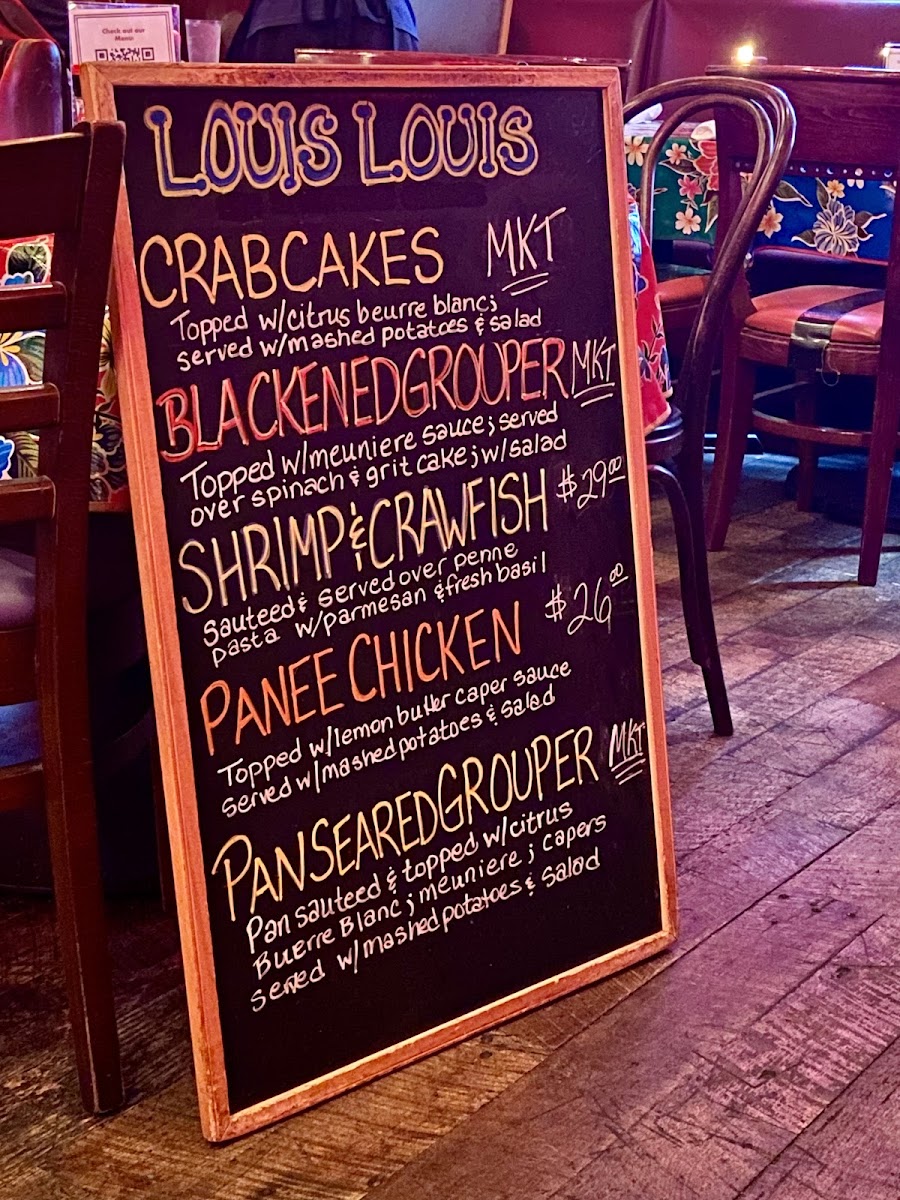 Check out our
Menu
LOUIS LOUIS
CRABCAKES MKT
Topped w/citrus beurre blanc;
served w/mashed potatoes & salad
BLACKENEDGROUPER MKT
Topped w/meuniere sauce; served
over spinach & grit cake; w/salad
SHRIMP & CRAWFISH $29.00
Sauteed & served over penne
pasta w/parmesan & fresh basil
PANEE CHICKEN $26.00
Topped w/lemon butter caper sauce
Served w/mashed potatoes & salad
PANSEAREDGROUPER MKT
Pan sauteed & topped w/citrus
Buerre Blanc; meuniere; capers
served w/mashed potatoes & salad